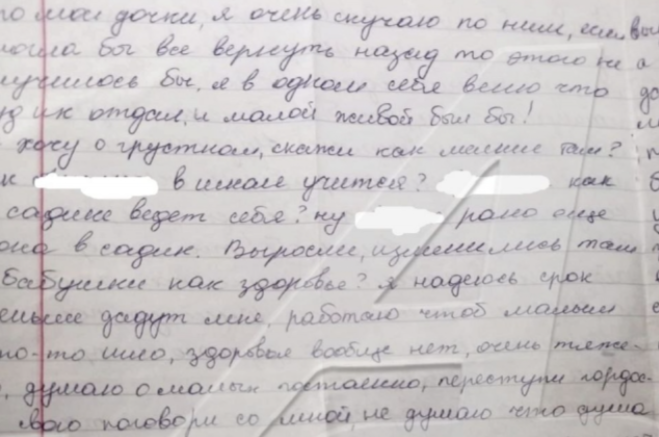 то мои дочки, я очень скучаю по ним, если вы
могла бы все вернуть назад то этого не а
лучилось бы, я в одном себя веню что
уд их отдал, и малой живой был бы!
хочу о грустном, скажи как малые там?
к в школе учится? как
садике ведет себя? ну рано още
она в садик. Выросли, изменились там
бабушки как здоровье? Я надеюсь срок
еньше дадут мне, работаю чтоб малым
то-то шло, здоровья вообще нет, очень тяже-
, думаю о малых постоенно, переступи гордос-
свою поговори со мной, не думаю что дума